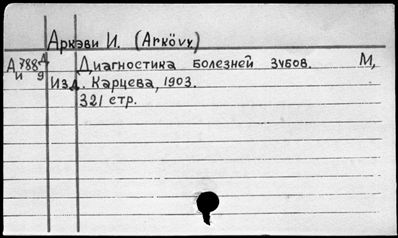 Аркэви И. (Arkövy)
А 788 Д Диагностика болезней зубов. М,
и 9 Изд. Карцева, 1903.
321 стр.